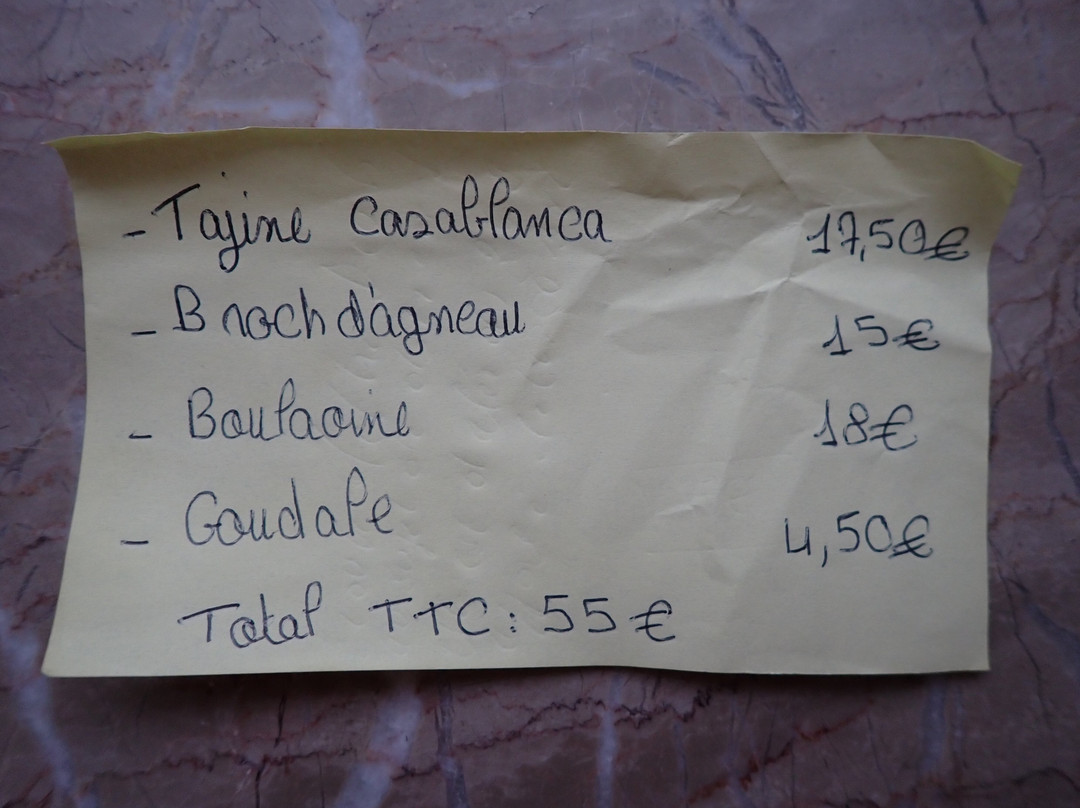 - Tajine Casablanca 17,50€
- Broch d'agneau 15€
- Boulaoine 18€
- Goudale 4,50€
Total TTC : 55€